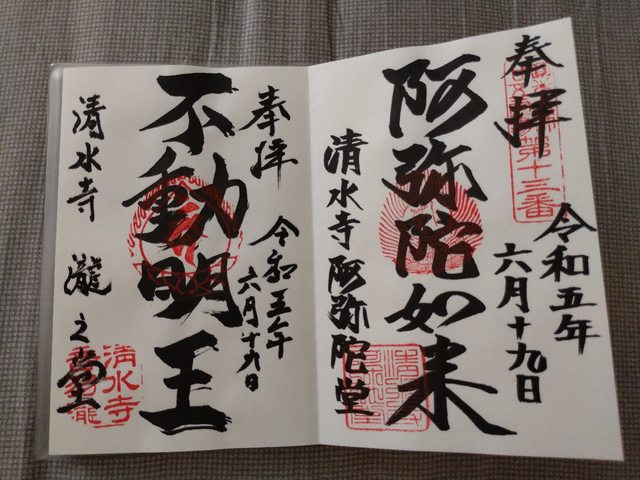 奉拝
第十三番
令和五年
六月十九日
阿弥陀如来
清水寺阿弥陀堂
奉拝
令和五年
六月十九日
不動明王
清水寺 瀧之堂
清水寺